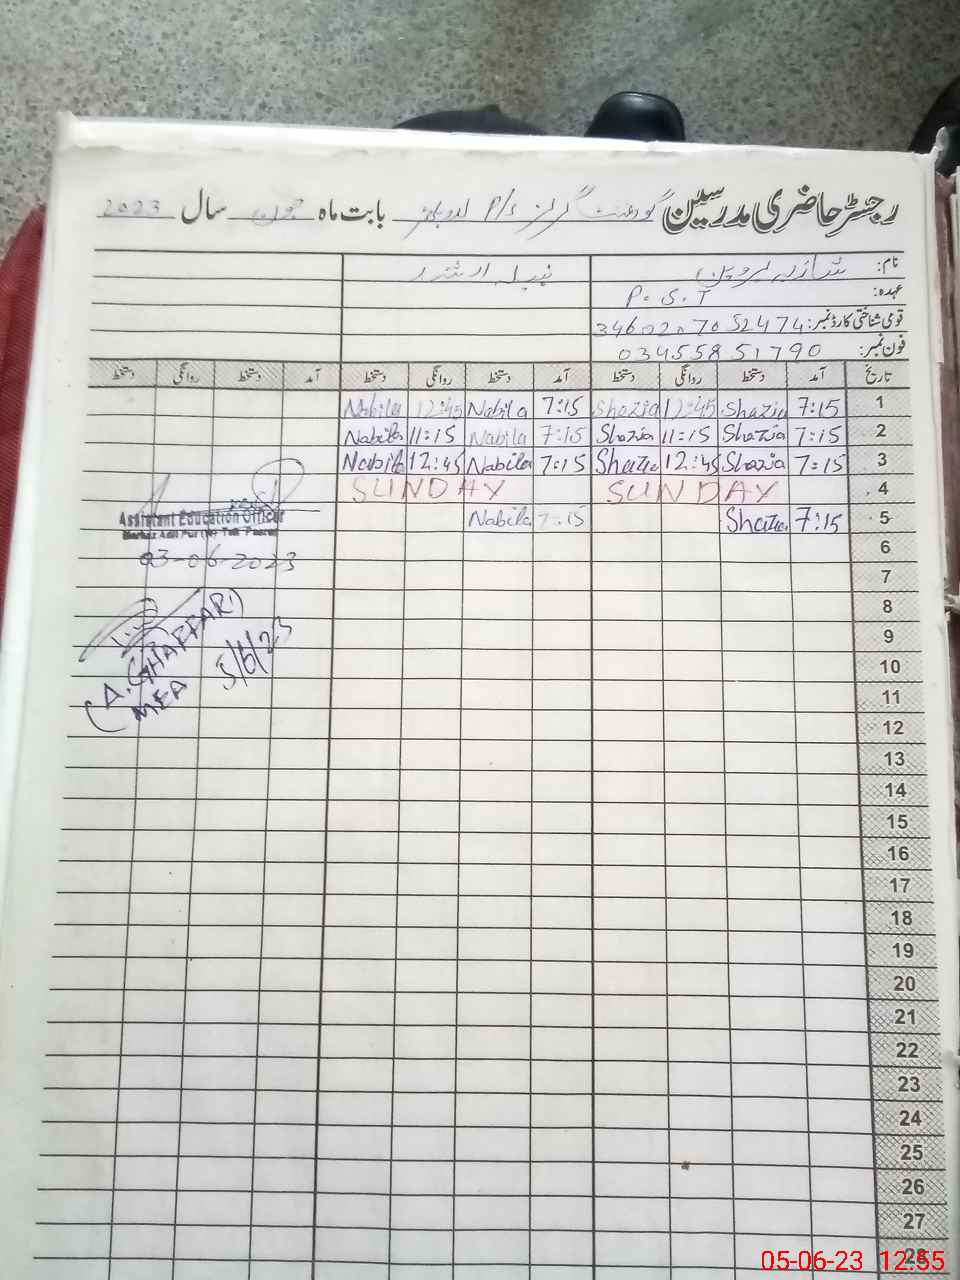 رجسٹر حاضری مدرسین گورنمنٹ گرلز P/S بابت ماہ جون سال 2023
نام: شازیہ پروین نبیلہ ارشد
عہدہ: P.S.T
قومی شناختی کارڈ نمبر: 3460207052474
فون نمبر: 03455851790
تاریخ آمد دستخط روانگی دستخط آمد دستخط روانگی دستخط آمد دستخط روانگی دستخط
1 7:15 Shazia 12:45 Shazia 7:15 Nabila 12:45 Nabila
2 7:15 Shazia 11:15 Shazia 7:15 Nabila 11:15 Nabila
3 7:15 Shazia 12:45 Shazia 7:15 Nabila 12:45 Nabila
4 SUNDAY SUNDAY
5 7:15 Shazia 7:15 Nabila
6
7
8
9
10
11
12
13
14
15
16
17
18
19
20
21
22
23
24
25
26
27
28
Assistant Education Officer
Markaz Adil Pur (W) Teh. Pasrur
03-06-2023
(A. GHAFFAR)
MEA 5/6/23
05-06-23 12:55